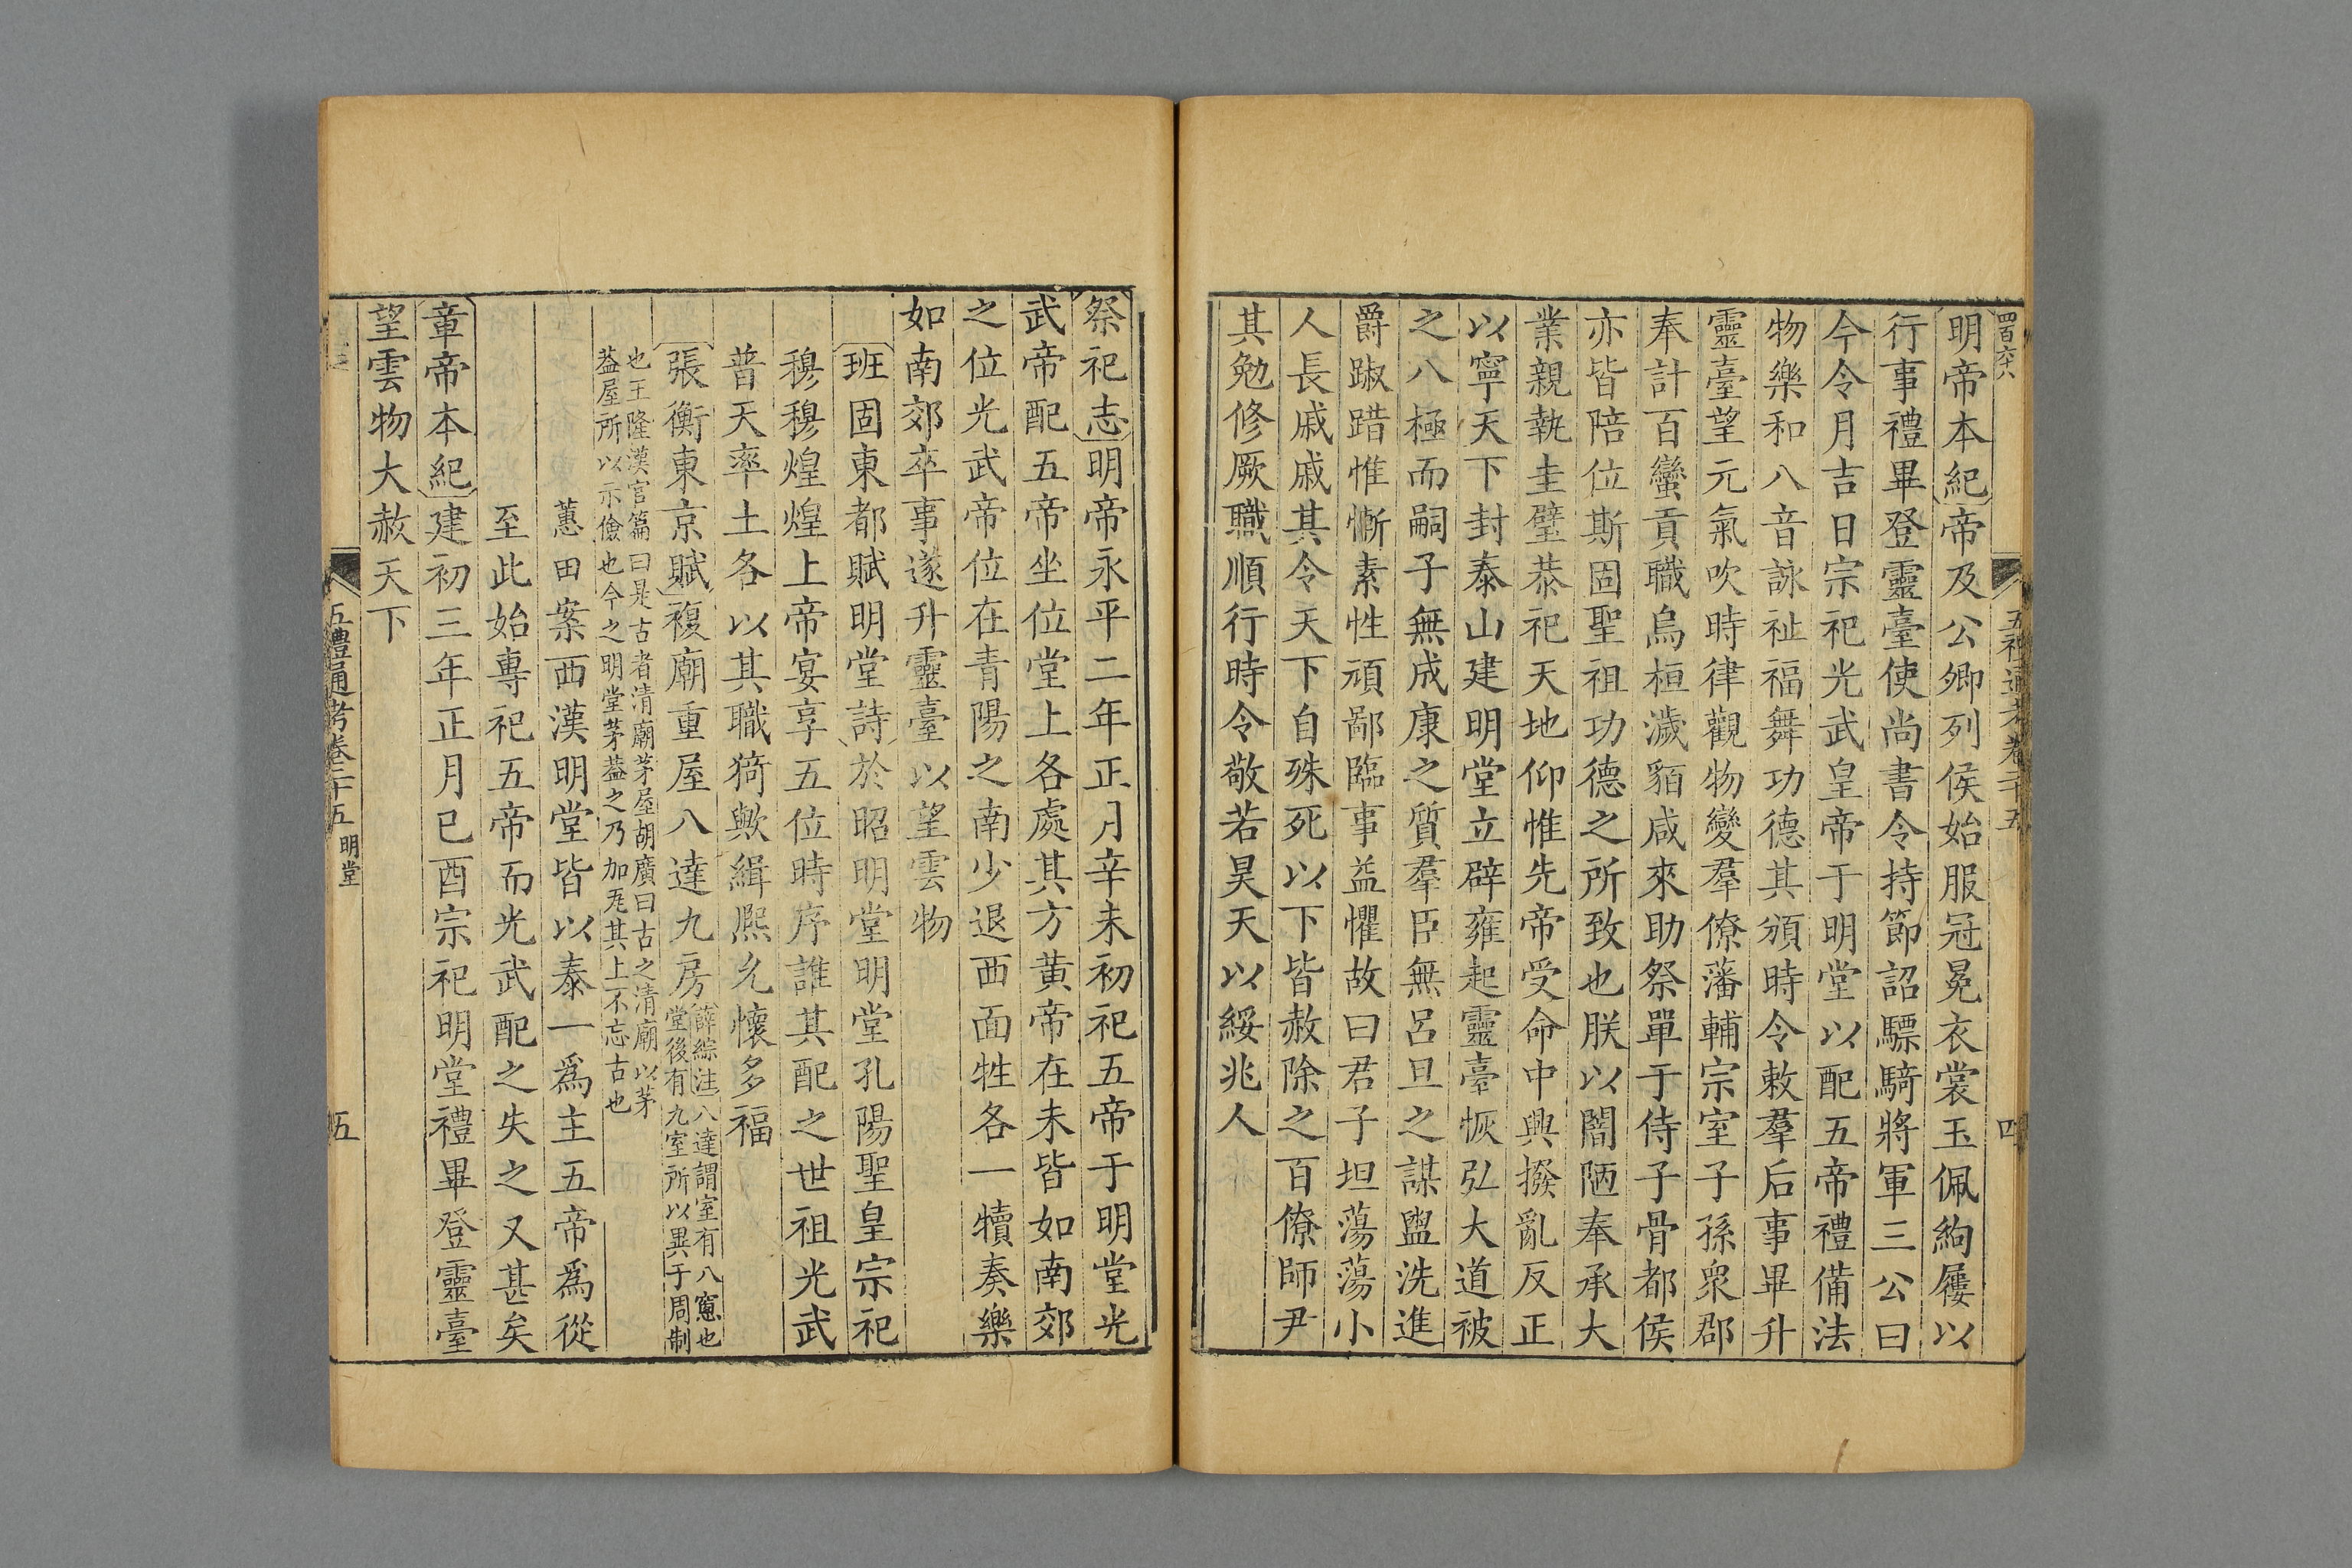 四百六十八
五禮通考卷二十五
四
明帝本紀帝及公卿列侯始服冠冕衣裳玉佩絇屨以
行事禮畢登靈臺使尚書令持節詔驃騎將軍三公曰
今令月吉日宗祀光武皇帝于明堂以配五帝禮備法
物樂和八音詠祉福舞功德其頒時令敕羣后事畢升
靈臺望元氣吹時律觀物變羣僚藩輔宗室子孫衆郡
奉計百蠻貢職烏桓濊貊咸來助祭單于侍子骨都侯
亦皆陪位斯固聖祖功德之所致也朕以闇陋奉承大
業親執圭璧恭祀天地仰惟先帝受命中興撥亂反正
以寧天下封泰山建明堂立辟雍起靈臺恢弘大道被
之八極而嗣子無成康之質羣臣無呂旦之謀盥洗進
爵踧踖惟慚素性頑鄙臨事益懼故曰君子坦蕩蕩小
人長戚戚其令天下自殊死以下皆赦除之百僚師尹
其勉修厥職順行時令敬若昊天以綏兆人
祭祀志明帝永平二年正月辛未初祀五帝于明堂光
武帝配五帝坐位堂上各處其方黃帝在未皆如南郊
之位光武帝位在青陽之南少退西面牲各一犢奏樂
如南郊卒事遂升靈臺以望雲物
班固東都賦明堂詩於昭明堂明堂孔陽聖皇宗祀
穆穆煌煌上帝宴享五位時序誰其配之世祖光武
普天率土各以其職猗歟緝熙允懷多福
張衡東京賦複廟重屋八達九房薛綜注八達謂室有八窻也
堂後有九室所以異于周制
也王隆漢官篇曰是古者清廟茅屋胡廣曰古之清廟以茅
葢屋所以示儉也今之明堂茅葢之乃加瓦其上不忘古也
蕙田案西漢明堂皆以泰一爲主五帝爲從
至此始專祀五帝而光武配之失之又甚矣
章帝本紀建初三年正月已酉宗祀明堂禮畢登靈臺
望雲物大赦天下
五禮通考卷二十五 明堂
五